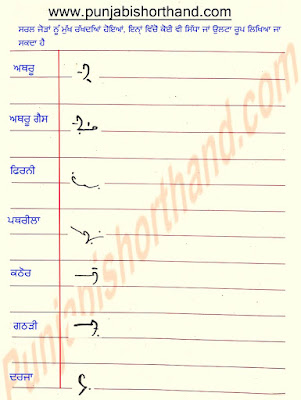 www.punjabishorthand.com
ਸਰਲ ਜੋੜਾਂ ਨੂੰ ਮੁੱਖ ਰੱਖਦਿਆਂ ਹੋਇਆਂ, ਇਨ੍ਹਾਂ ਵਿੱਚੋਂ ਕੋਈ ਵੀ ਸਿੱਧਾ ਜਾਂ ਉਲਟਾ ਰੂਪ ਲਿਖਿਆ ਜਾ
ਸਕਦਾ ਹੈ
ਅਥਰੂ
ਅਥਰੂ ਗੈਸ
ਫਿਰਨੀ
ਪਥਰੀਲਾ
ਕਠੋਰ
ਗਠੜੀ
ਦਰਜਾ
Punjabishorthand.com